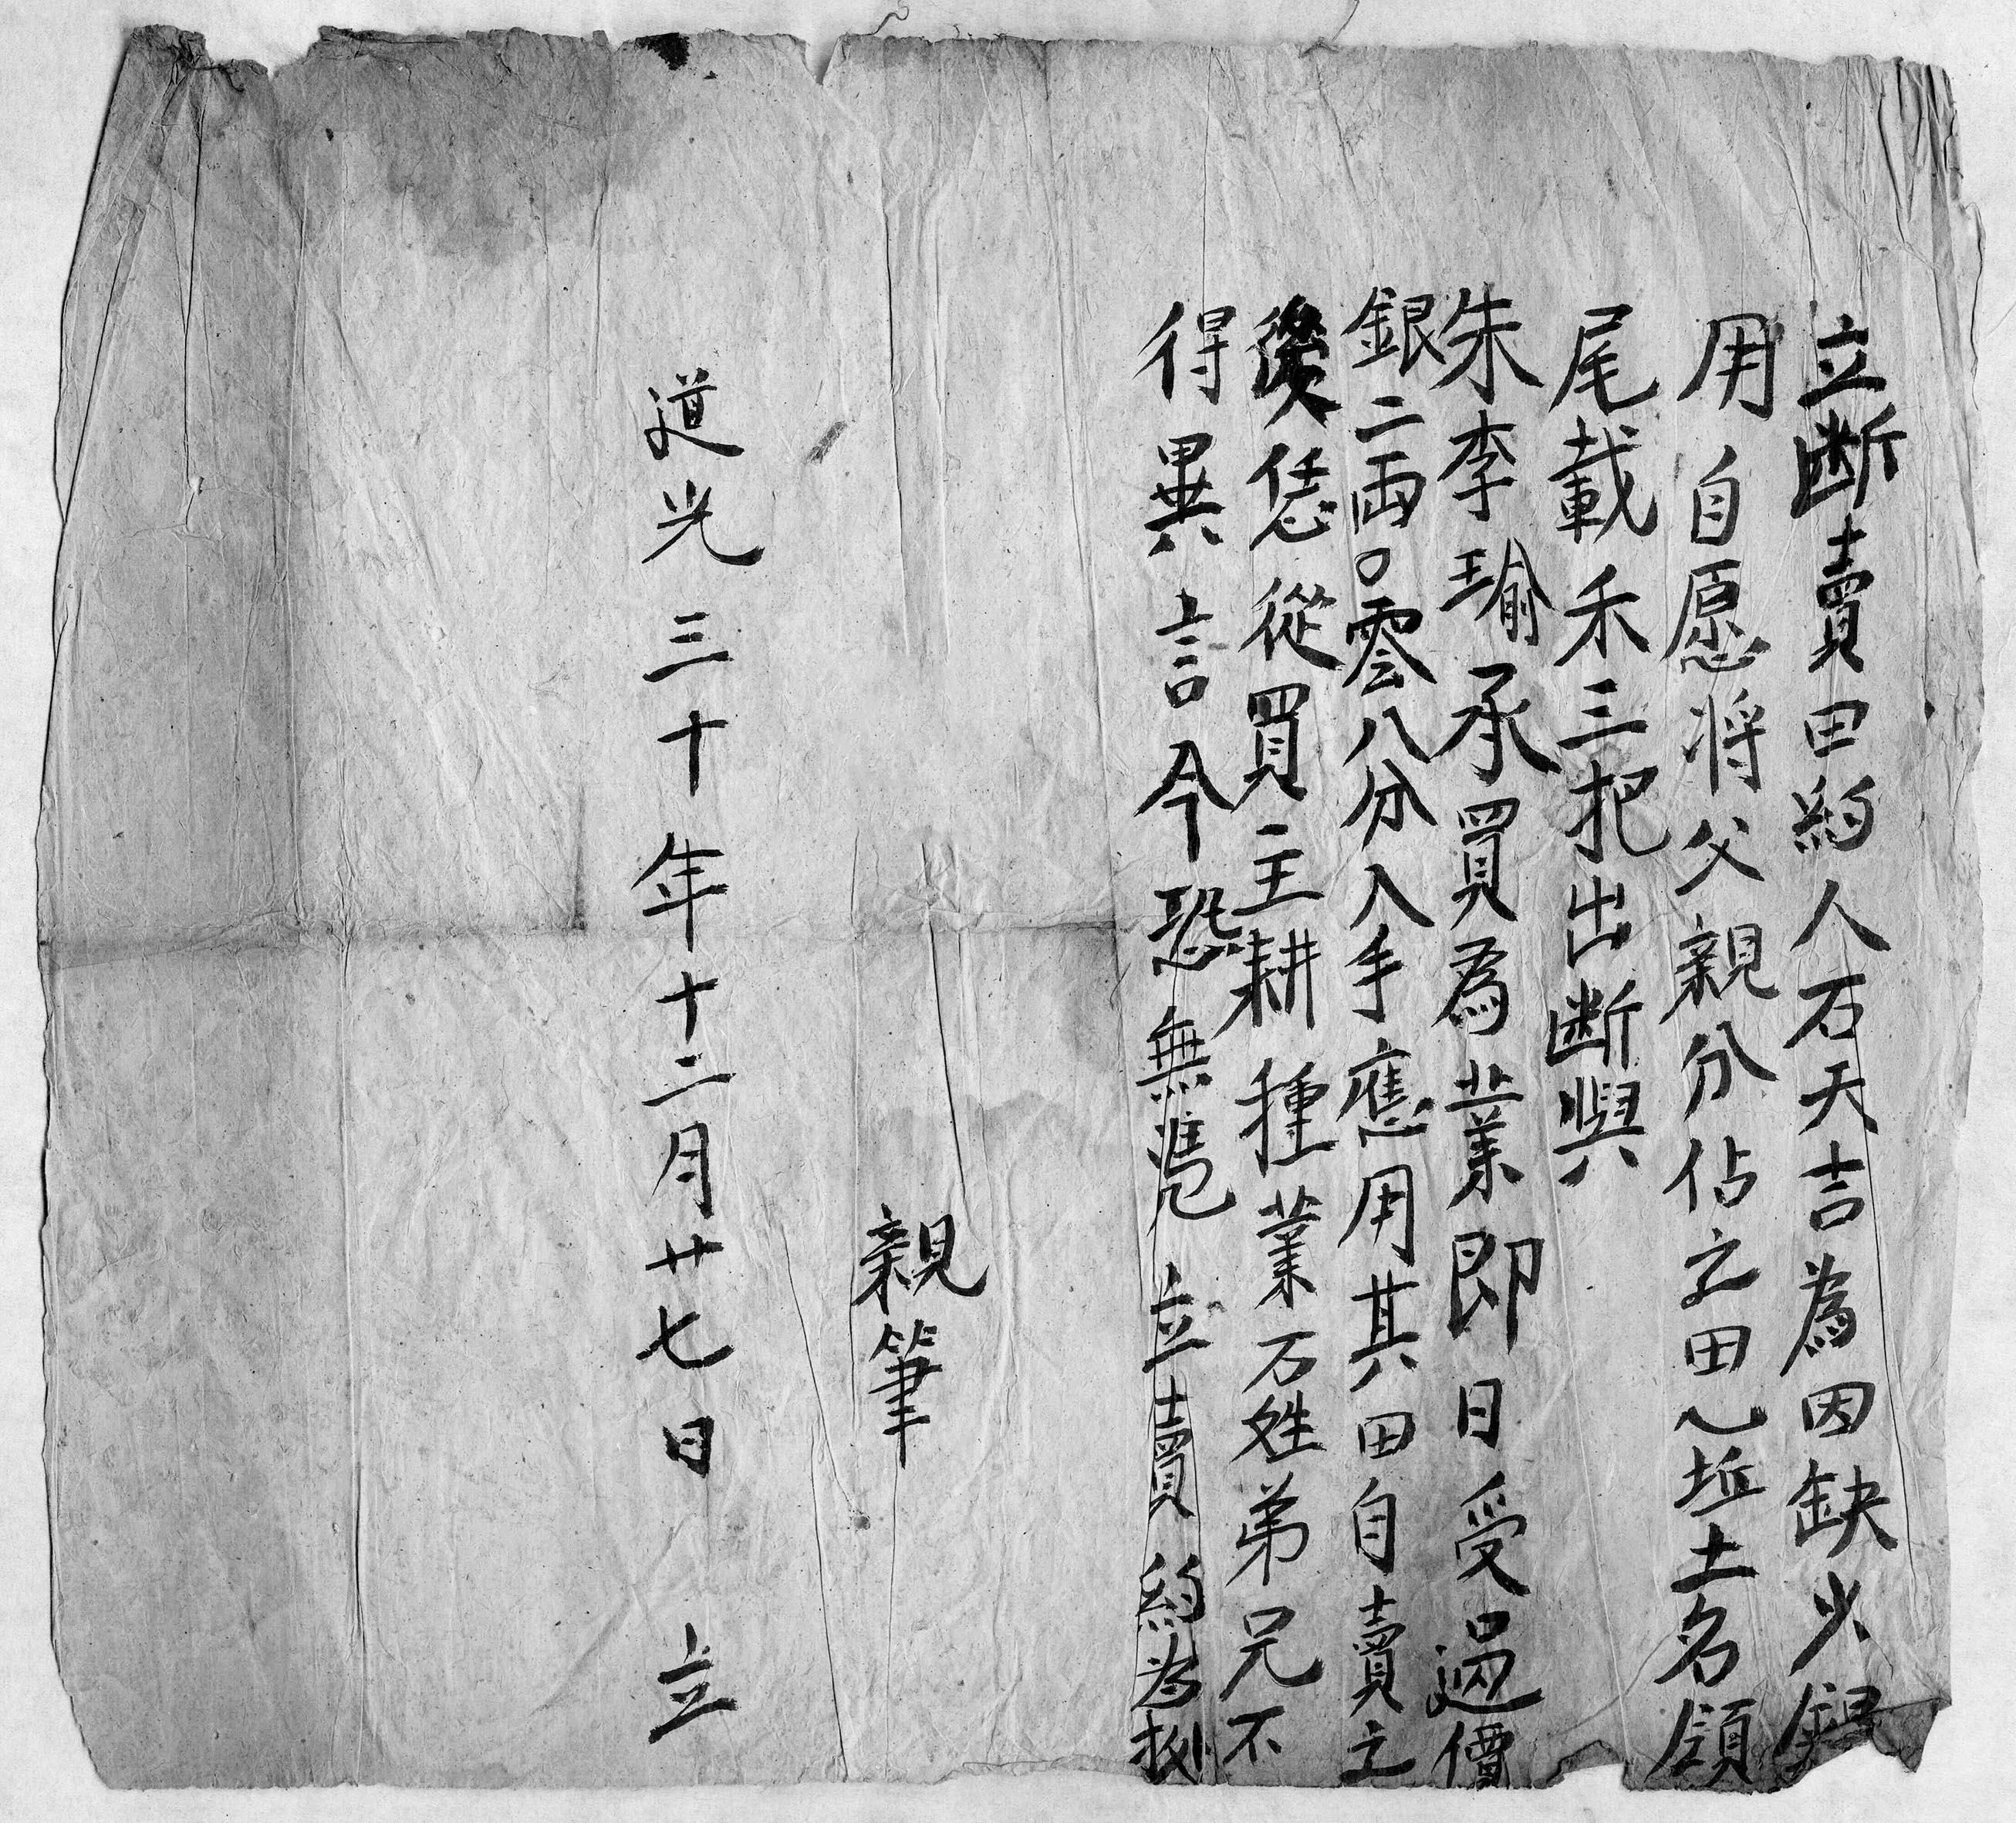 立断賣田約人石天吉為因缺少銀
用自愿将父親分佔之田乀坵土名領
尾載禾三把出断與
朱李瑜承買為業即日受過價
銀二両〇零八分入手應用其田自賣之
後恁從買主耕種業石姓弟兄不
得異言今恐無凴立賣約為拠
親筆
道光三十年十二月廿七日立